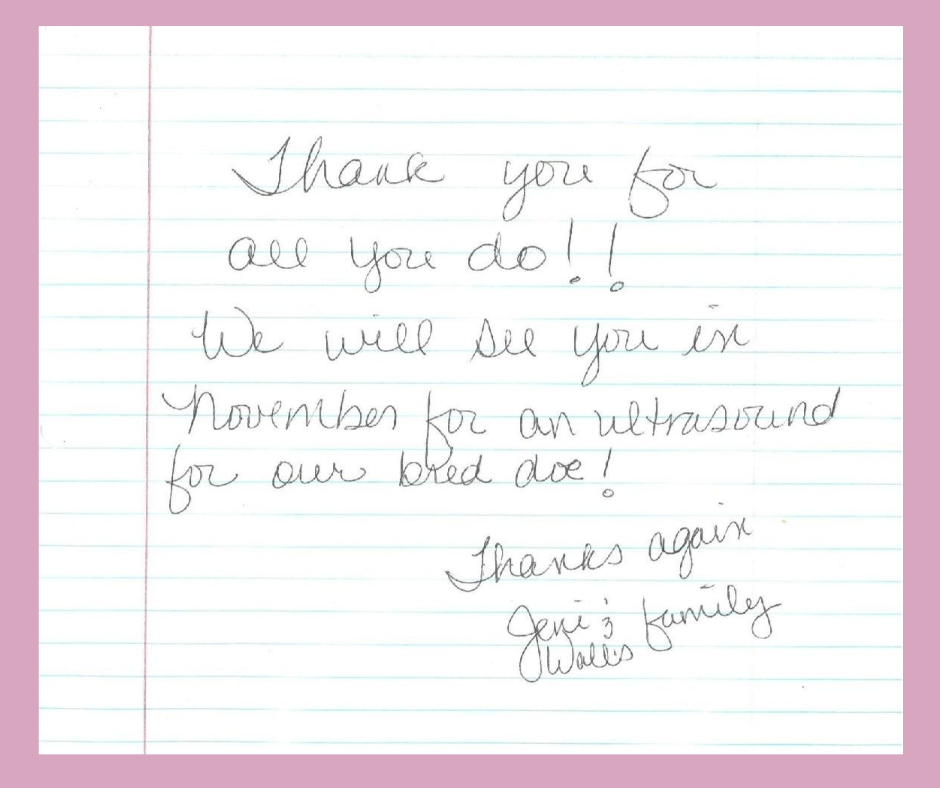 Thank you for
all you do!!
We will see you in
November for an ultrasound
for our bred doe!
Thanks again
Jeni & family
Wallis